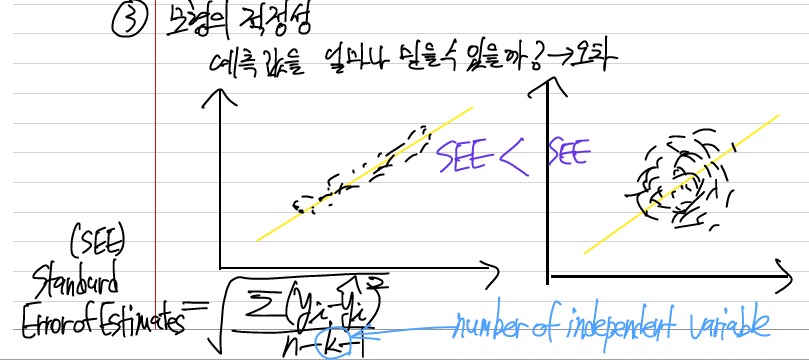 ③ 모형의 적정성
예측 값을 얼마나 믿을수 있을까? → 오차
SEE < SEE
(SEE)
Standard
Error of Estimates = √(Σ(yi-ŷi)² / n-k-1)
number of independent variable